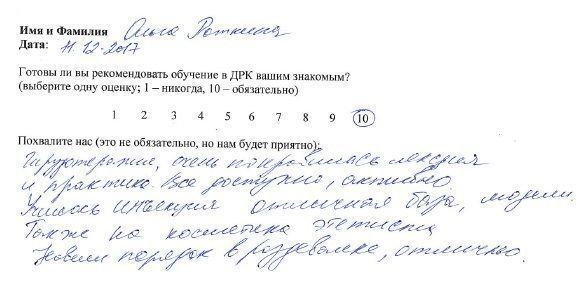 Имя и Фамилия Ольга Роткина
Дата: 11.12.2017
Готовы ли вы рекомендовать обучение в ДРК вашим знакомым?
(выберите одну оценку; 1 – никогда, 10 – обязательно)
1 2 3 4 5 6 7 8 9 10
Похвалите нас (это не обязательно, но нам будет приятно):
Гирудотерапия, очень понравилась лекция
и практика. Все доступно, активно
Училась инъекция отличная база, модели.
Также на косметика эстетиста
Навели порядок в раздевалке, отлично.